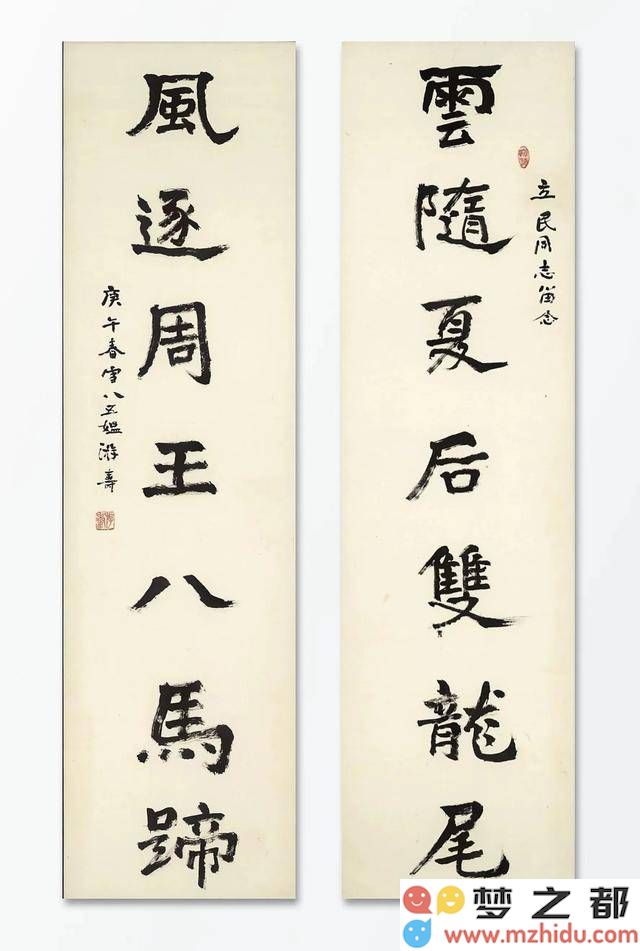 立民同志留念
雲隨夏后雙龍尾
風逐周王八馬蹄
庚午春雪八五媪游壽
梦之都
www.mzhidu.com